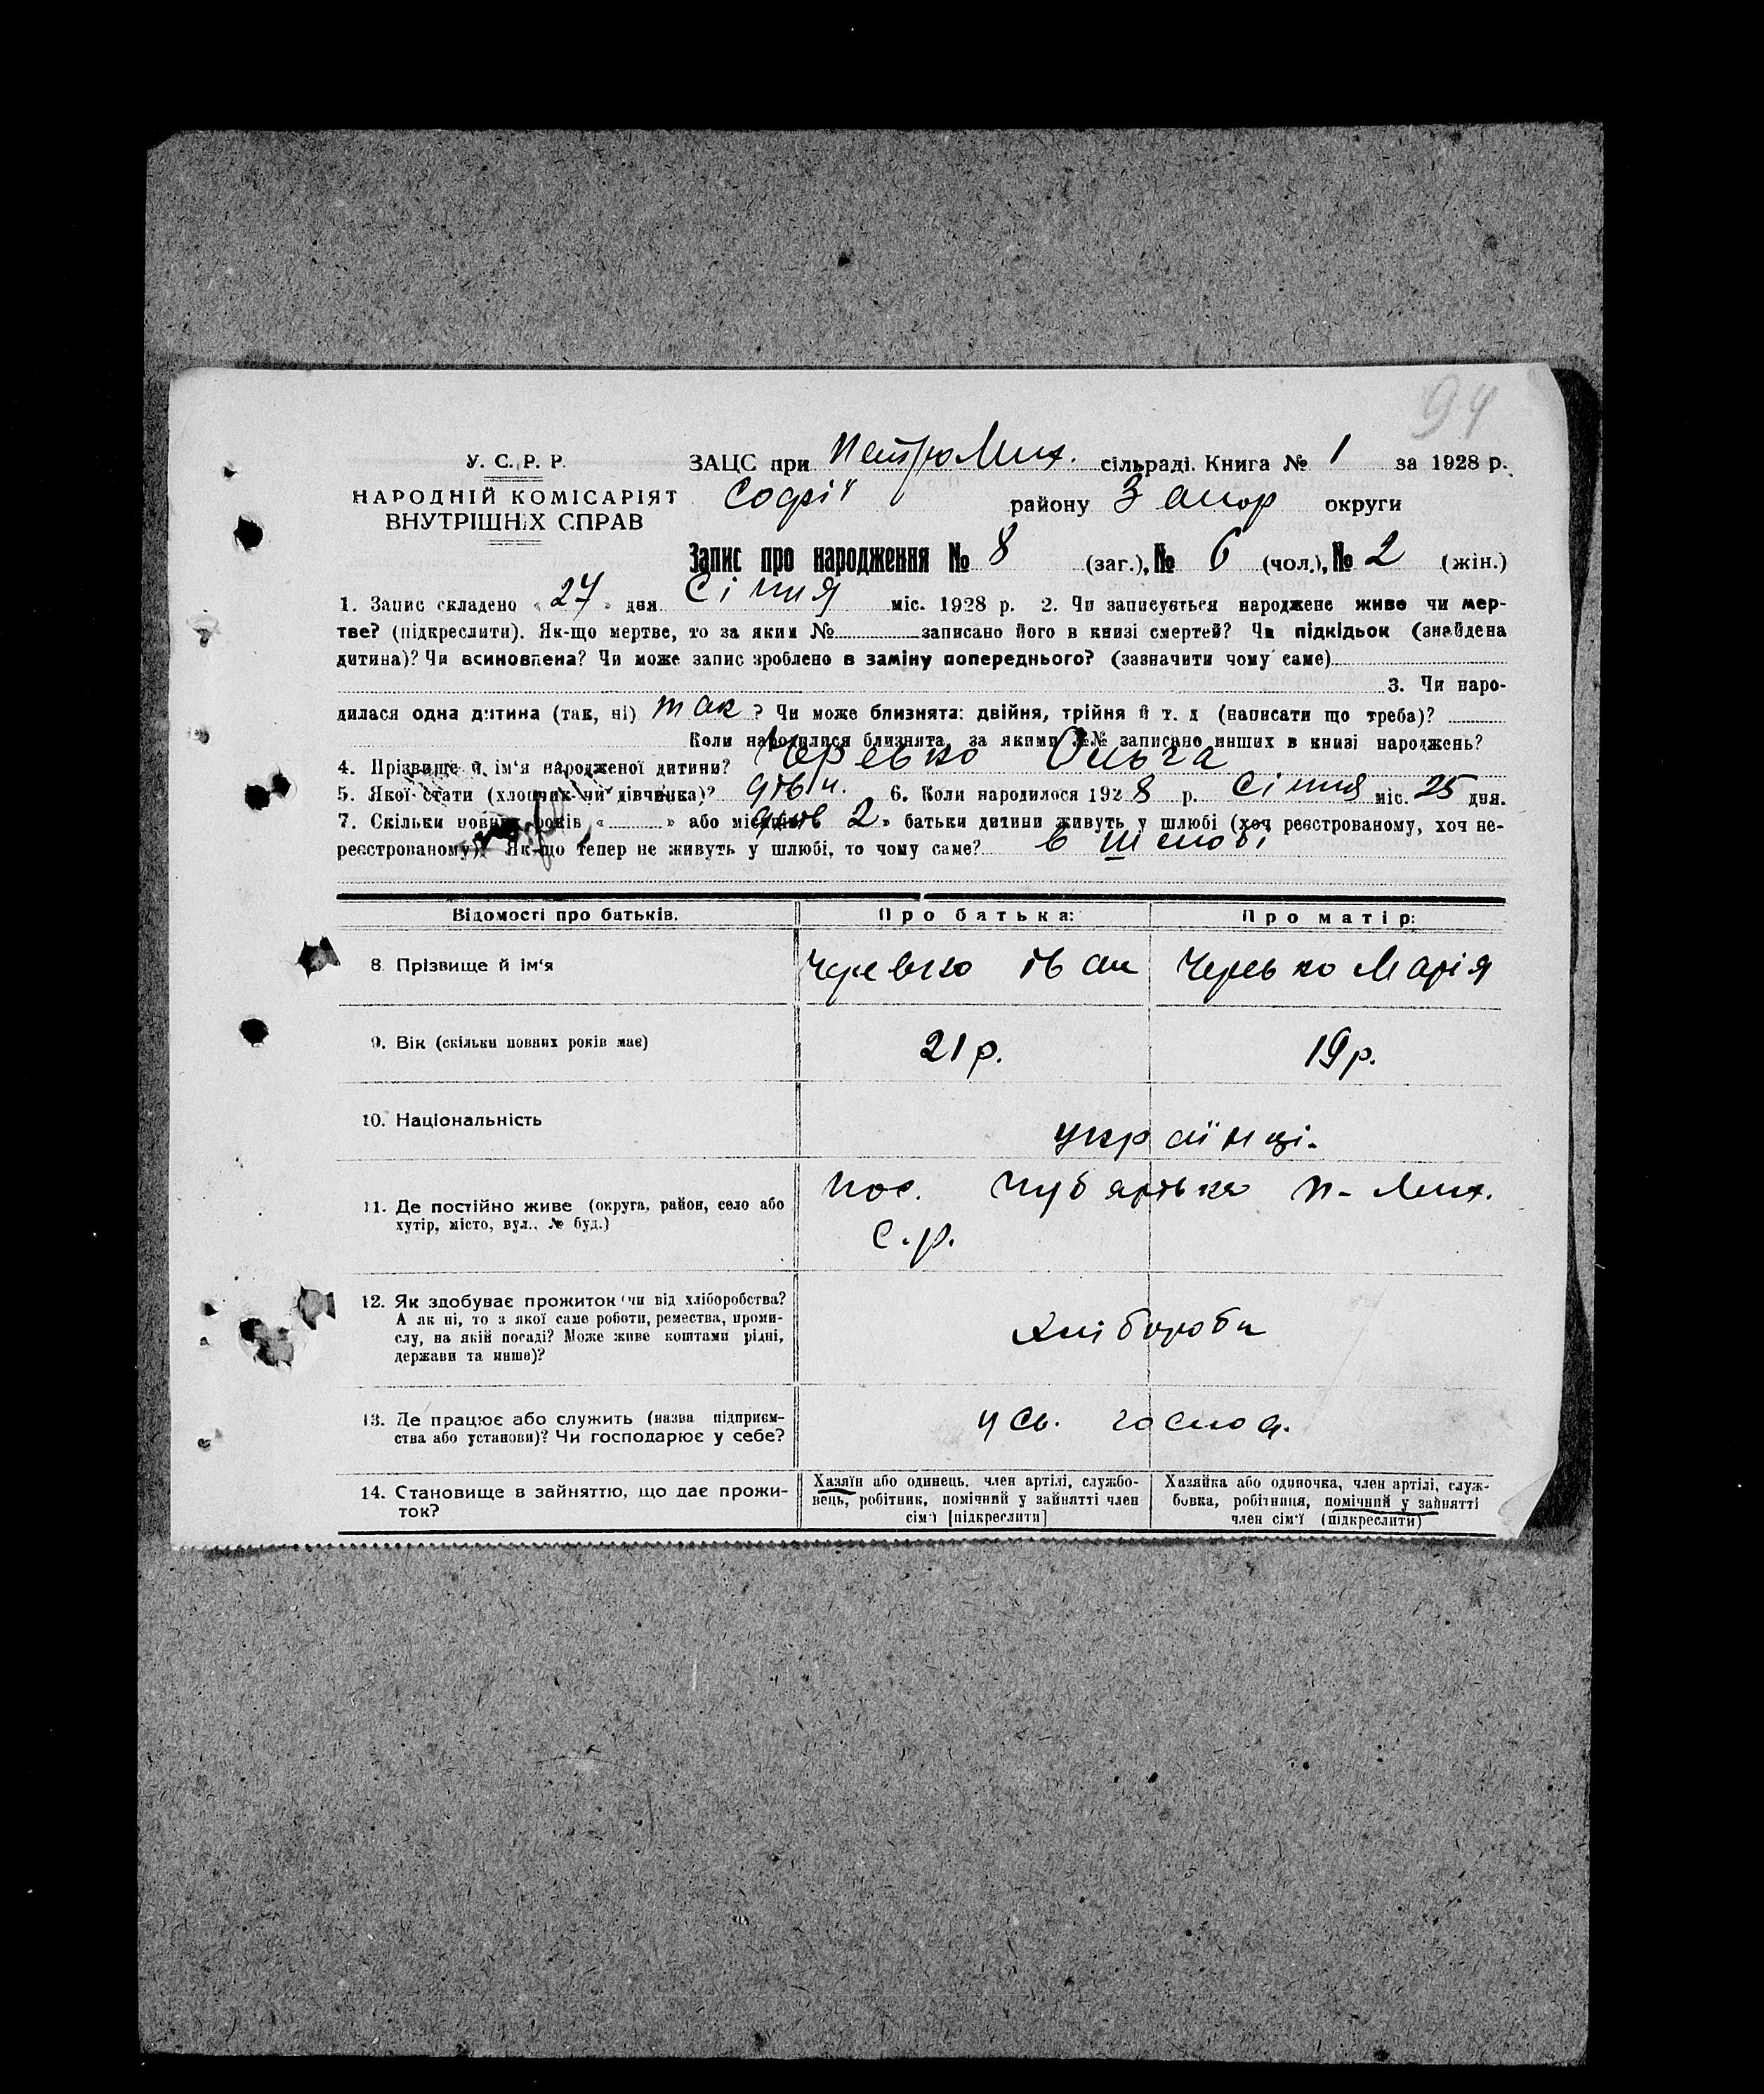 94
У. С. Р. Р.
НАРОДНІЙ КОМІСАРІЯТ
ВНУТРІШНІХ СПРАВ
ЗАЦС при ПетроМих. сільраді. Книга № 1 за 1928 р.
Софії району Запор округи
Запис про народження № 8 (заг.), № 6 (чол.), № 2 (жін.)
1. Запис складено « 27 » дня Січня міс. 1928 р. 2. Чи записується народжене живе чи мер-
тве? (підкреслити). Як-що мертве, то за яким № записано його в книзі смертей? Чи підкідьок (знайдена
дитина)? Чи всиновлена? Чи може запис зроблено в заміну попереднього? (зазначити чому саме)
3. Чи наро-
дилася одна дитина (так, ні) так ? Чи може близнята: двійня, трійня й т. д (написати що треба)?
Коли народилися близнята, за якими №№ записано инших в книзі народжень?
4. Прізвище й ім'я народженої дитини? Черевко Ольга
5. Якої стати (хлопчик чи дівчинка)? дівч. 6. Коли народилося 1928 р. Січня міс. 25 дня.
7. Скільки повних років « » або місяців 2 » батьки дитини живуть у шлюбі (хоч реєстрованому, хоч не-
реєстрованому)? Як-що тепер не живуть у шлюбі, то чому саме? в шлюбі
Відомості про батьків. Про батька: Про матір:
8. Прізвище й ім'я Черевко Іван Черевко Марія
9. Вік (скільки повних років має) 21 р. 19 р.
10. Національність українці.
11. Де постійно живе (округа, район, село або пос. Чубарівка П-Мих.
хутір, місто, вул., № буд.) с.р.
12. Як здобуває прожиток (чи від хліборобства?
А як ні, то з якої саме роботи, ремества, проми-
слу, на якій посаді? Може живе коштами рідні, хлібороби
держави та инше)?
13. Де працює або служить (назва підприєм- у св. господ.
ства або установи)? Чи господарює у себе?
14. Становище в зайняттю, що дає прожи-
ток?
Хазяїн або одинець, член артілі, службо-
вець, робітник, помічний у зайнятті член
сім'ї [підкреслити]
Хазяйка або одиночка, член артілі, служ-
бовка, робітниця, помічний у зайнятті
член сім'ї (підкреслити)